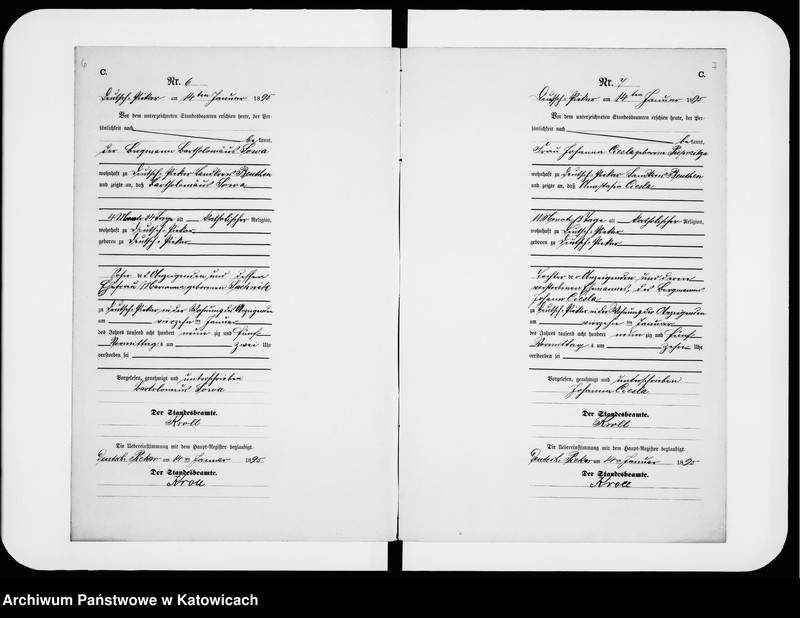 6
C.
Nr. 6
Deutsch-Piekar am 14 ten Januar 1895
Vor dem unterzeichneten Standesbeamten erschien heute, der Per-
sönlichkeit nach
be kannt,
der Bergmann Bartholomäus Sowa
wohnhaft zu Deutsch-Piekar Landkreis Beuthen
und zeigte an, daß Bartholomäus Sowa
4 Monate 24 Tage alt katholischer Religion,
wohnhaft zu Deutsch-Piekar
geboren zu Deutsch-Piekar
Sohn des Anzeigenden und dessen
Ehefrau Marianna geborenen
zu Deutsch-Piekar in der Wohnung des Anzeigenden
am vierzehnten Januar
des Jahres tausend acht hundert neun zig und fünf
Vormittags um zwei Uhr
verstorben sei
Vorgelesen, genehmigt und unterschrieben
Bartolomeus Sowa
Der Standesbeamte.
Kroll
Die Uebereinstimmung mit dem Haupt-Register beglaubigt.
Deutsch-Piekar am 14 ten Januar 1895
Der Standesbeamte.
Kroll
7
C.
Nr. 7
Deutsch-Piekar am 14 ten Januar 1895
Vor dem unterzeichneten Standesbeamten erschien heute, der Per-
sönlichkeit nach
be kannt,
Frau Johanna Ciesla geborene
wohnhaft zu Deutsch-Piekar Landkreis Beuthen
und zeigte an, daß Anastasia Ciesla
11 Monat Tage alt katholischer Religion,
wohnhaft zu Deutsch-Piekar
geboren zu Deutsch-Piekar
Tochter der Anzeigenden und deren
verstorbenen Ehemannes, des Bergmanns
Johann Ciesla
zu Deutsch-Piekar in der Wohnung der Anzeigenden
am vierzehnten Januar
des Jahres tausend acht hundert neun zig und fünf
Vormittags um zehn Uhr
verstorben sei
Vorgelesen, genehmigt und unterschrieben
Johanna Ciesla
Der Standesbeamte.
Kroll
Die Uebereinstimmung mit dem Haupt-Register beglaubigt.
Deutsch-Piekar am 14 ten Januar 1895
Der Standesbeamte.
Kroll
Archiwum Państwowe w Katowicach